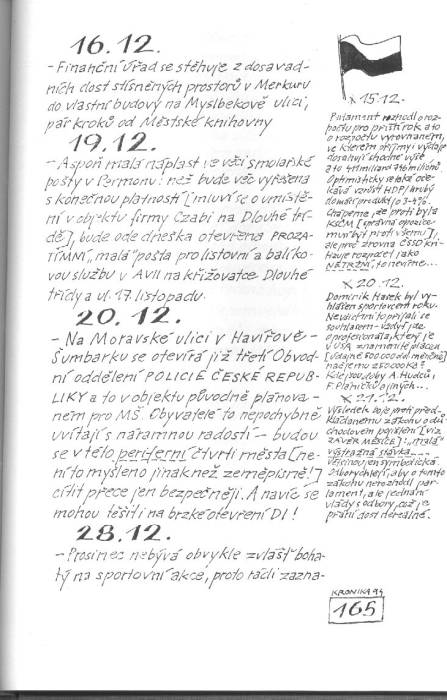 16.12.
- Finanční úřad se stěhuje z dosavad-
ních dost stísněných prostorů v Merkuru
do vlastní budovy na Myslbekově ulici,
pár kroků od Městské knihovny
19.12.
- Aspoň malá náplast ve věci smolařské
pošty v Permonu: než bude věc vyřešena
s konečnou platností [mluví se o umístě-
ní v objektu firmy Czabi na Dlouhé tří-
dě], bude ode dneška otevřena PROZA-
TÍMNÍ „malá" pošta pro listovní a balíko-
vou službu v AVII na křižovatce Dlouhé
třídy a ul. 17. listopadu.
20.12.
- Na Moravské ulici v Havířově-
Šumbarku se otevírá již třetí Obvod-
ní oddělení POLICIE ČESKÉ REPUB-
LIKY a to v objektu původně plánova-
ném pro MŠ. Obyvatelé to nepochybně
uvítají s náramnou radostí - budou
se v této periferní čtvrti města [ne-
ní to myšleno jinak než zeměpisně!]
cítit přece jen bezpečněji. A navíc se
mohou těšit i na brzké otevření DI!
28.12.
- Prosinec nebývá obvykle zvlášť boha-
tý na sportovní akce, proto rádi zazna-
15.12.-
Parlament rozhodl o roz-
počtu pro příští rok a to
o rozpočtu vyrovnaném,
ve kterém příjmy i výdaje
dosahují shodné výše
Optimisticky se také oče-
kává vzrůst HDP/hrubý
domácí produkt/o 3-4%.
Chápeme, že proti byla
KSČM [správná opozice
musí být proti všemu],
ale proč zrovna ČSSD kri-
tizuje rozpočet jako
NETRŽNÍ, to nevíme...
20.12.-
Dominik Hašek byl vy-
hlášen sportovcem roku.
souhlasem - vždyť jde
o profesionála, který je
v USA znamenitě placen
[údajně 500 000 dol. měsíčně]
F. Pláničků a jiných...
21.12.-
Výsledek boje proti před-
kládanému zákonu o dů-
chodovém pojištění [viz
ZÁVĚR MĚSÍCE]: „malá"
výstražná stávka -
většinou jen symbolická
zákonu nerozhodl par-
lament, ale jednání
vlády s odbory, což je
přání dost nereálné.
KRONIKA 94
165